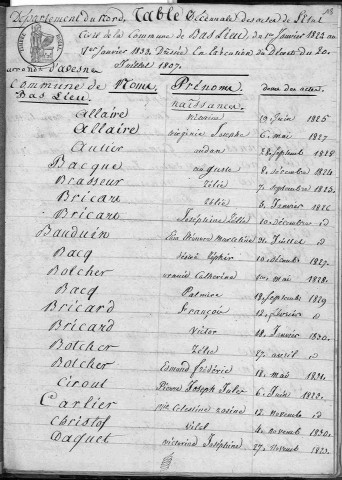 Département du Nord. Table Décennale des actes de l'État
Civil de la Commune de Bas Lieu, du 1er Janvier 1823 au
1er Janvier 1833. Dressée en Exécution du Décrets du 20.
arrondt d'avesnes Juillet 1807.
Commune de Noms Prénoms dates des actes
Bas Lieu. naissances
Allaire Nicaise 19 Juin 1825
Allaire virginie Josephe 6. mai 1827
Autier 28 Septemb 1828
Bacque auguste 8. décembre 1824
Brasseur Zélie 7. Septembre 1823.
Bricart Zélie 6. Janvier 1826
Bricart Joséphine Zélie 10. décembre d
Bauduin Marceline 31. Juillet d
Bacq Désiré Zéphir 10 décemb. 1827.
Botcher Catherine 1er mai 1828.
Bacq Palmire 18. Septemb 1829
Bricard François 12. février d
Bricard Victor 18. Janvier 1830.
Botcher Zélie 27. avril d
Botcher Edmond frédéric 18. mai 1831.
Cirout Pierre Joseph Jules 6. Juin 1823.
Carlier Celestine rosine 12. Novemb d
Christof Vital 4. Novemb 1830.
Daquet victorine Joséphine 27. Novemb 1823.